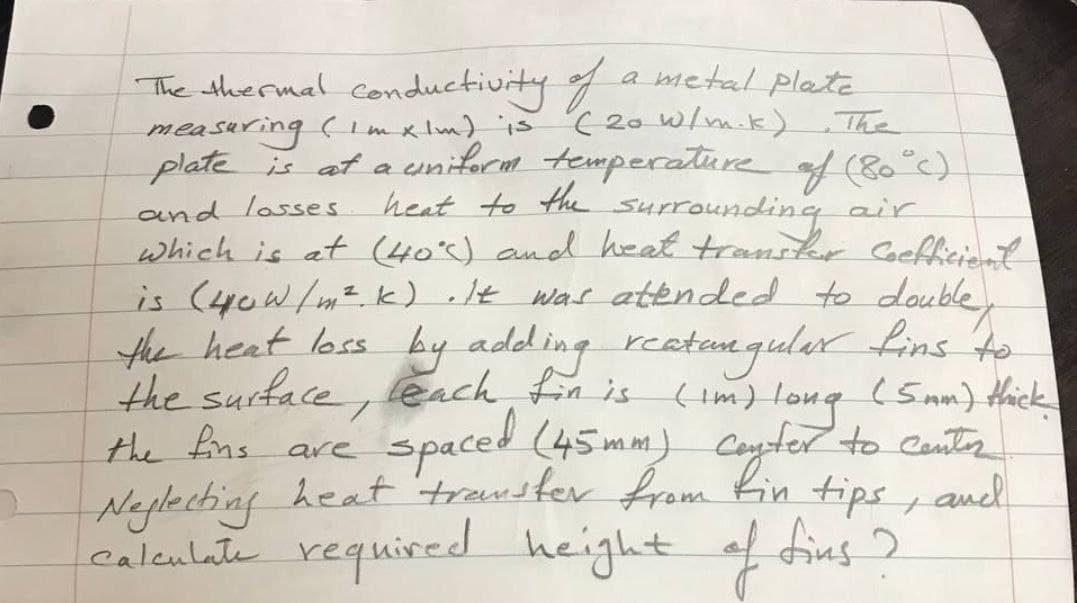 The thermal conductivity of a metal plate
measuring (1m x 1m) is (20 W/m.k) . The
plate is at a uniform temperature of (80°c)
and losses heat to the surrounding air
which is at (40°c) and heat transfer Coefficient
is (40W/m².k) . It was attended to double,
the heat loss by adding rcatangular fins to
the surface, each fin is (1m) long (5mm) thick
the fins are spaced (45mm) Center to Center
Neglecting heat transfer from fin tips, and
calculate required height of fins?